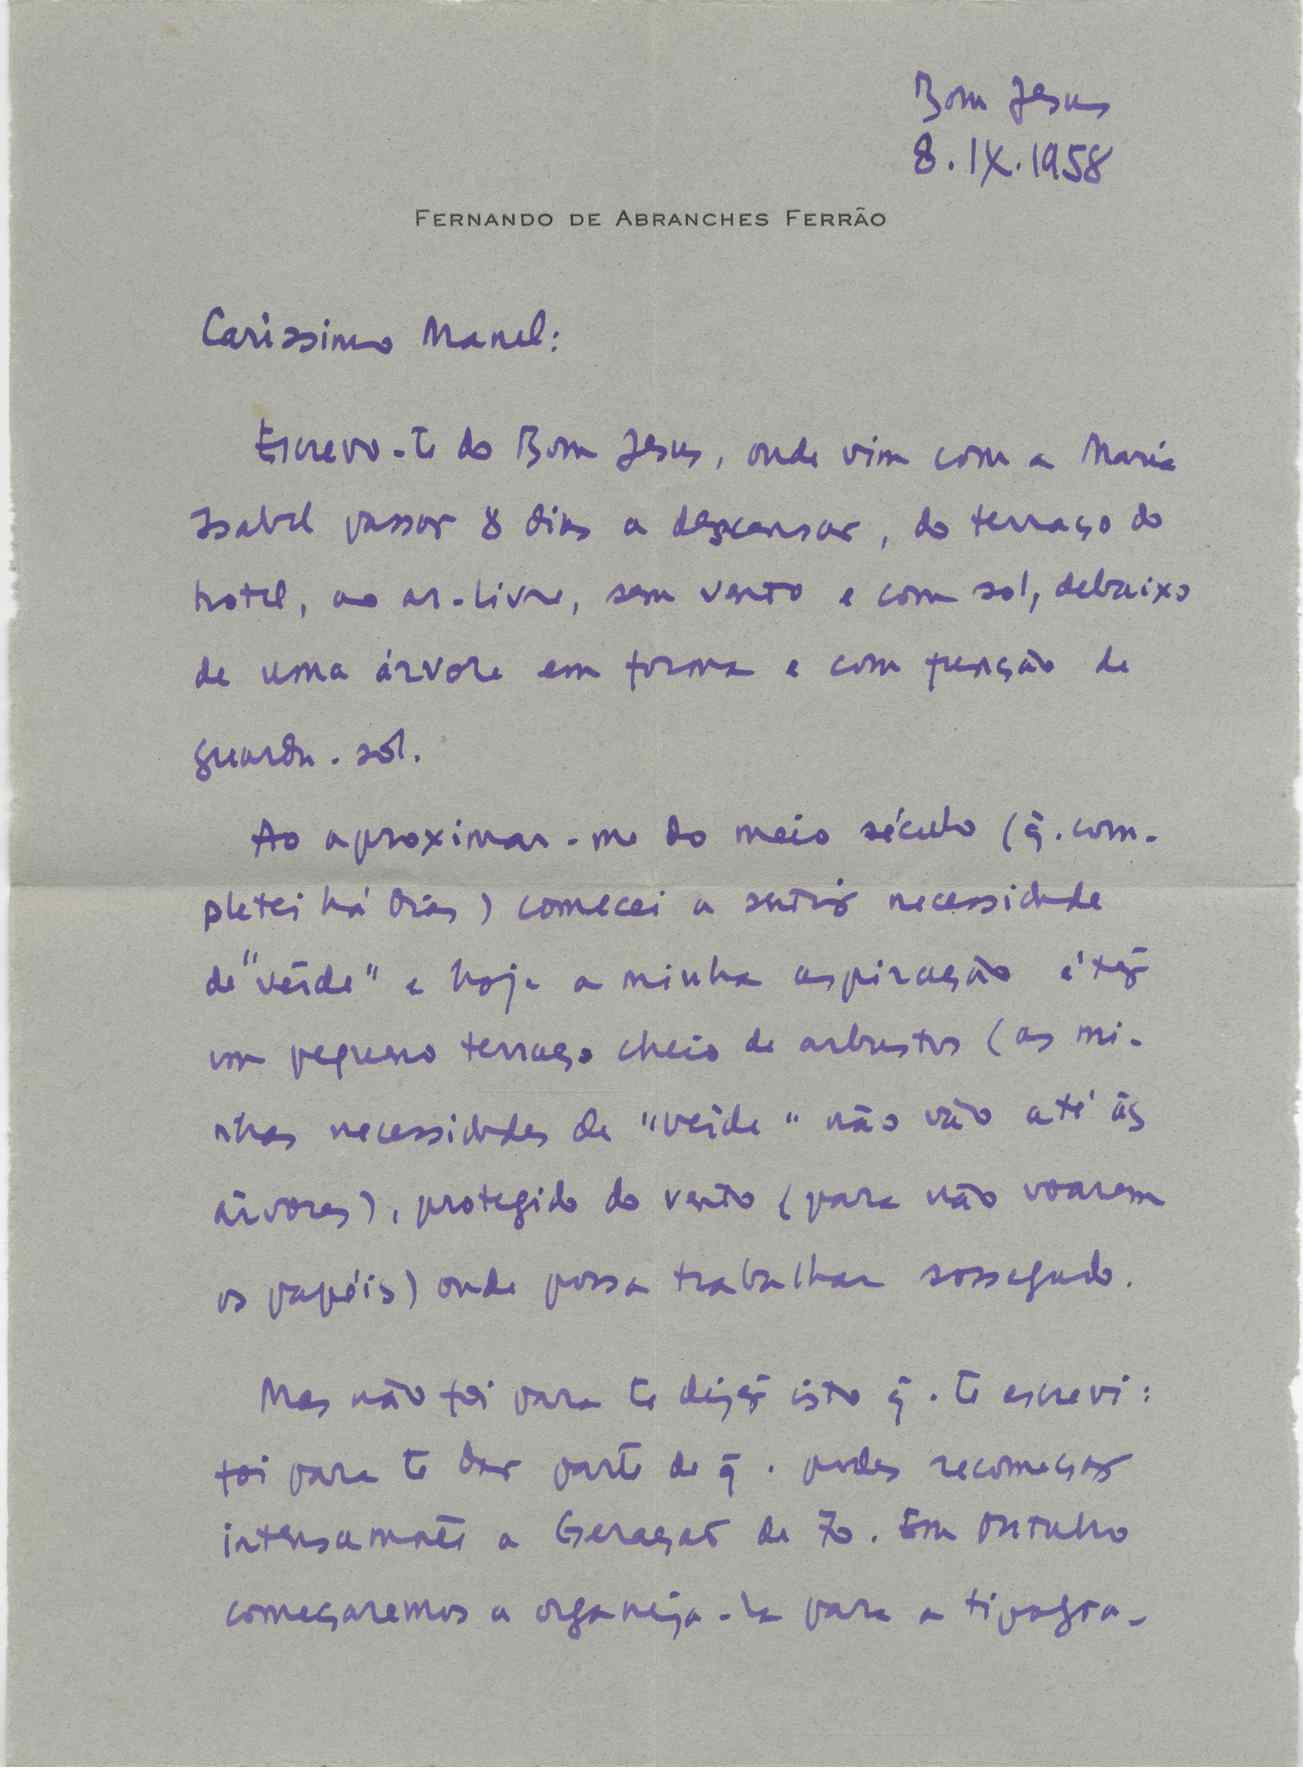 Bom Jesus
8.IX.1958
FERNANDO DE ABRANCHES FERRÃO
Caríssimo Manel:
Escrevo-te do Bom Jesus, onde vim com a Maria
Isabel passar 8 dias a descansar, do terraço do
hotel, ao ar-livre, sem vento e com sol, debaixo
de uma árvore em forma e com função de
guarda-sol.
Ao aproximar-me do meio século (q̃. com-
pletei há dias) comecei a sentir necessidade
de "verde" e hoje a minha aspiração é ter
um pequeno terraço cheio de arbustos (as mi-
nhas necessidades de "verde" não vão até às
árvores), protegido do vento (para não voarem
os papéis) onde possa trabalhar sossegado.
Mas não foi para te dizer isto q̃. te escrevi:
foi para te dar parte de q̃. podes recomeçar
intensamente a Geração de 70. Em Outubro
começaremos a organizá-la para a tipogra-